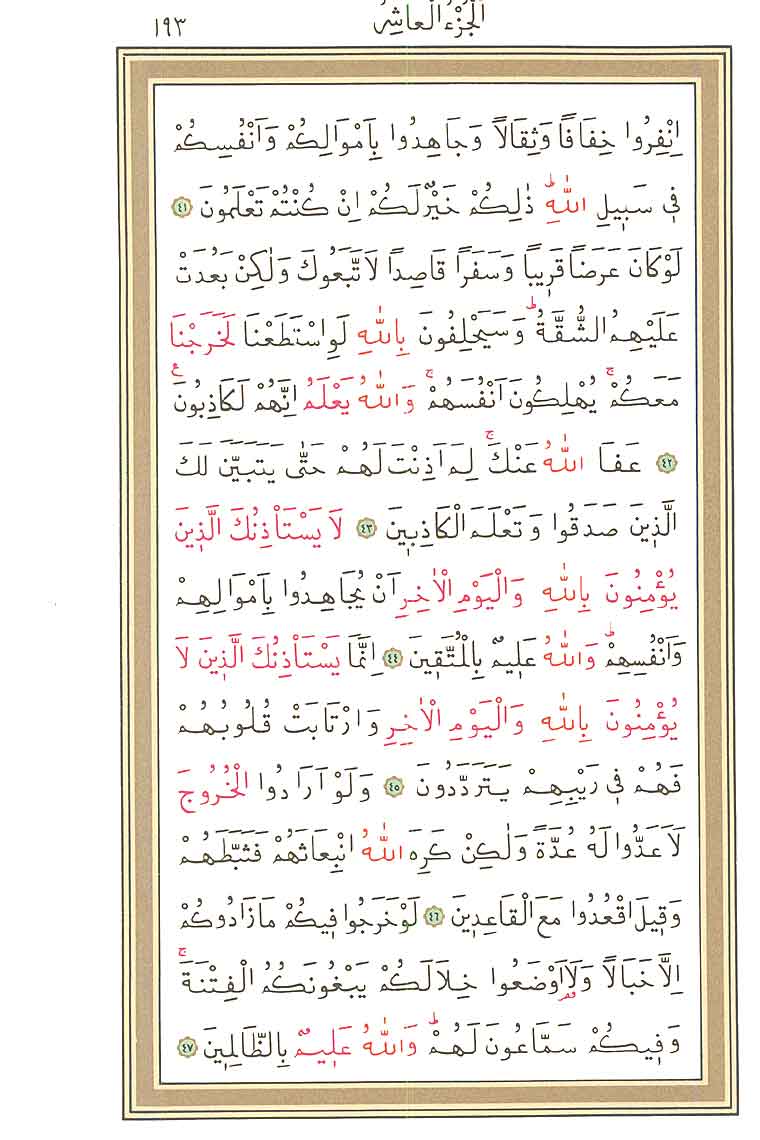 الجزء العاشر ١٩٣
اِنْفِرُوا خِفَافًا وَثِقَالًا وَجَاهِدُوا بِاَمْوَالِكُمْ وَاَنْفُسِكُمْ
فٖي سَبٖيلِ اللّٰهِؕ ذٰلِكُمْ خَيْرٌ لَكُمْ اِنْ كُنْتُمْ تَعْلَمُونَ ٤١
لَوْ كَانَ عَرَضًا قَرٖيبًا وَسَفَرًا قَاصِدًا لَاتَّبَعُوكَ وَلٰكِنْ بَعُدَتْ
عَلَيْهِمُ الشُّقَّةُؕ وَسَيَحْلِفُونَ بِاللّٰهِ لَوِ اسْتَطَعْنَا لَخَرَجْنَا
مَعَكُمْۚ يُهْلِكُونَ اَنْفُسَهُمْۚ وَاللّٰهُ يَعْلَمُ اِنَّهُمْ لَكَاذِبُونَࣖ
٤٢ عَفَا اللّٰهُ عَنْكَۚ لِمَ اَذِنْتَ لَهُمْ حَتّٰى يَتَبَيَّنَ لَكَ
الَّذٖينَ صَدَقُوا وَتَعْلَمَ الْكَاذِبٖينَ ٤٣ لَا يَسْتَأْذِنُكَ الَّذٖينَ
يُؤْمِنُونَ بِاللّٰهِ وَالْيَوْمِ الْاٰخِرِ اَنْ يُجَاهِدُوا بِاَمْوَالِهِمْ
وَاَنْفُسِهِمْؕ وَاللّٰهُ عَلٖيمٌ بِالْمُتَّقٖينَ ٤٤ اِنَّمَا يَسْتَأْذِنُكَ الَّذٖينَ لَا
يُؤْمِنُونَ بِاللّٰهِ وَالْيَوْمِ الْاٰخِرِ وَارْتَابَتْ قُلُوبُهُمْ
فَهُمْ فٖي رَيْبِهِمْ يَتَرَدَّدُونَ ٤٥ وَلَوْ اَرَادُوا الْخُرُوجَ
لَاَعَدُّوا لَهُ عُدَّةً وَلٰكِنْ كَرِهَ اللّٰهُ انْبِعَاثَهُمْ فَثَبَّطَهُمْ
وَقٖيلَ اقْعُدُوا مَعَ الْقَاعِدٖينَ ٤٦ لَوْ خَرَجُوا فٖيكُمْ مَا زَادُوكُمْ
اِلَّا خَبَالًا وَلَا۬اَوْضَعُوا خِلَالَكُمْ يَبْغُونَكُمُ الْفِتْنَةَۚ
وَفٖيكُمْ سَمَّاعُونَ لَهُمْؕ وَاللّٰهُ عَلٖيمٌ بِالظَّالِمٖينَ ٤٧